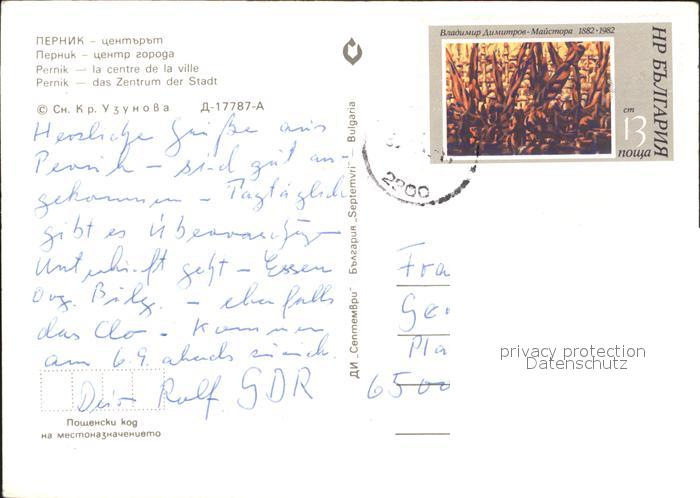 ПЕРНИК – центърът
Перник – центр города
Pernik — la centre de la ville
Pernik — das Zentrum der Stadt
© Сн. Кр. Узунова Д-17787-А
Herzliche Grüße aus
Pernik – sind gut an-
gekommen – Tagtäglich
gibt es Überraschungen
Unterkunft geht – Essen
– ebenfalls
das Clo – Kommen
am 6.9. abends zurück.
Dein Rolf GDR
Пощенски код
на местоназначението
ДИ „Септември" България „Septemvri" – Bulgaria
Владимир Димитров - Майстора 1882 · 1982
НР БЪЛГАРИЯ
ст
13
поща
2300
Fra
Ger
Pla
6500
privacy protection
Datenschutz